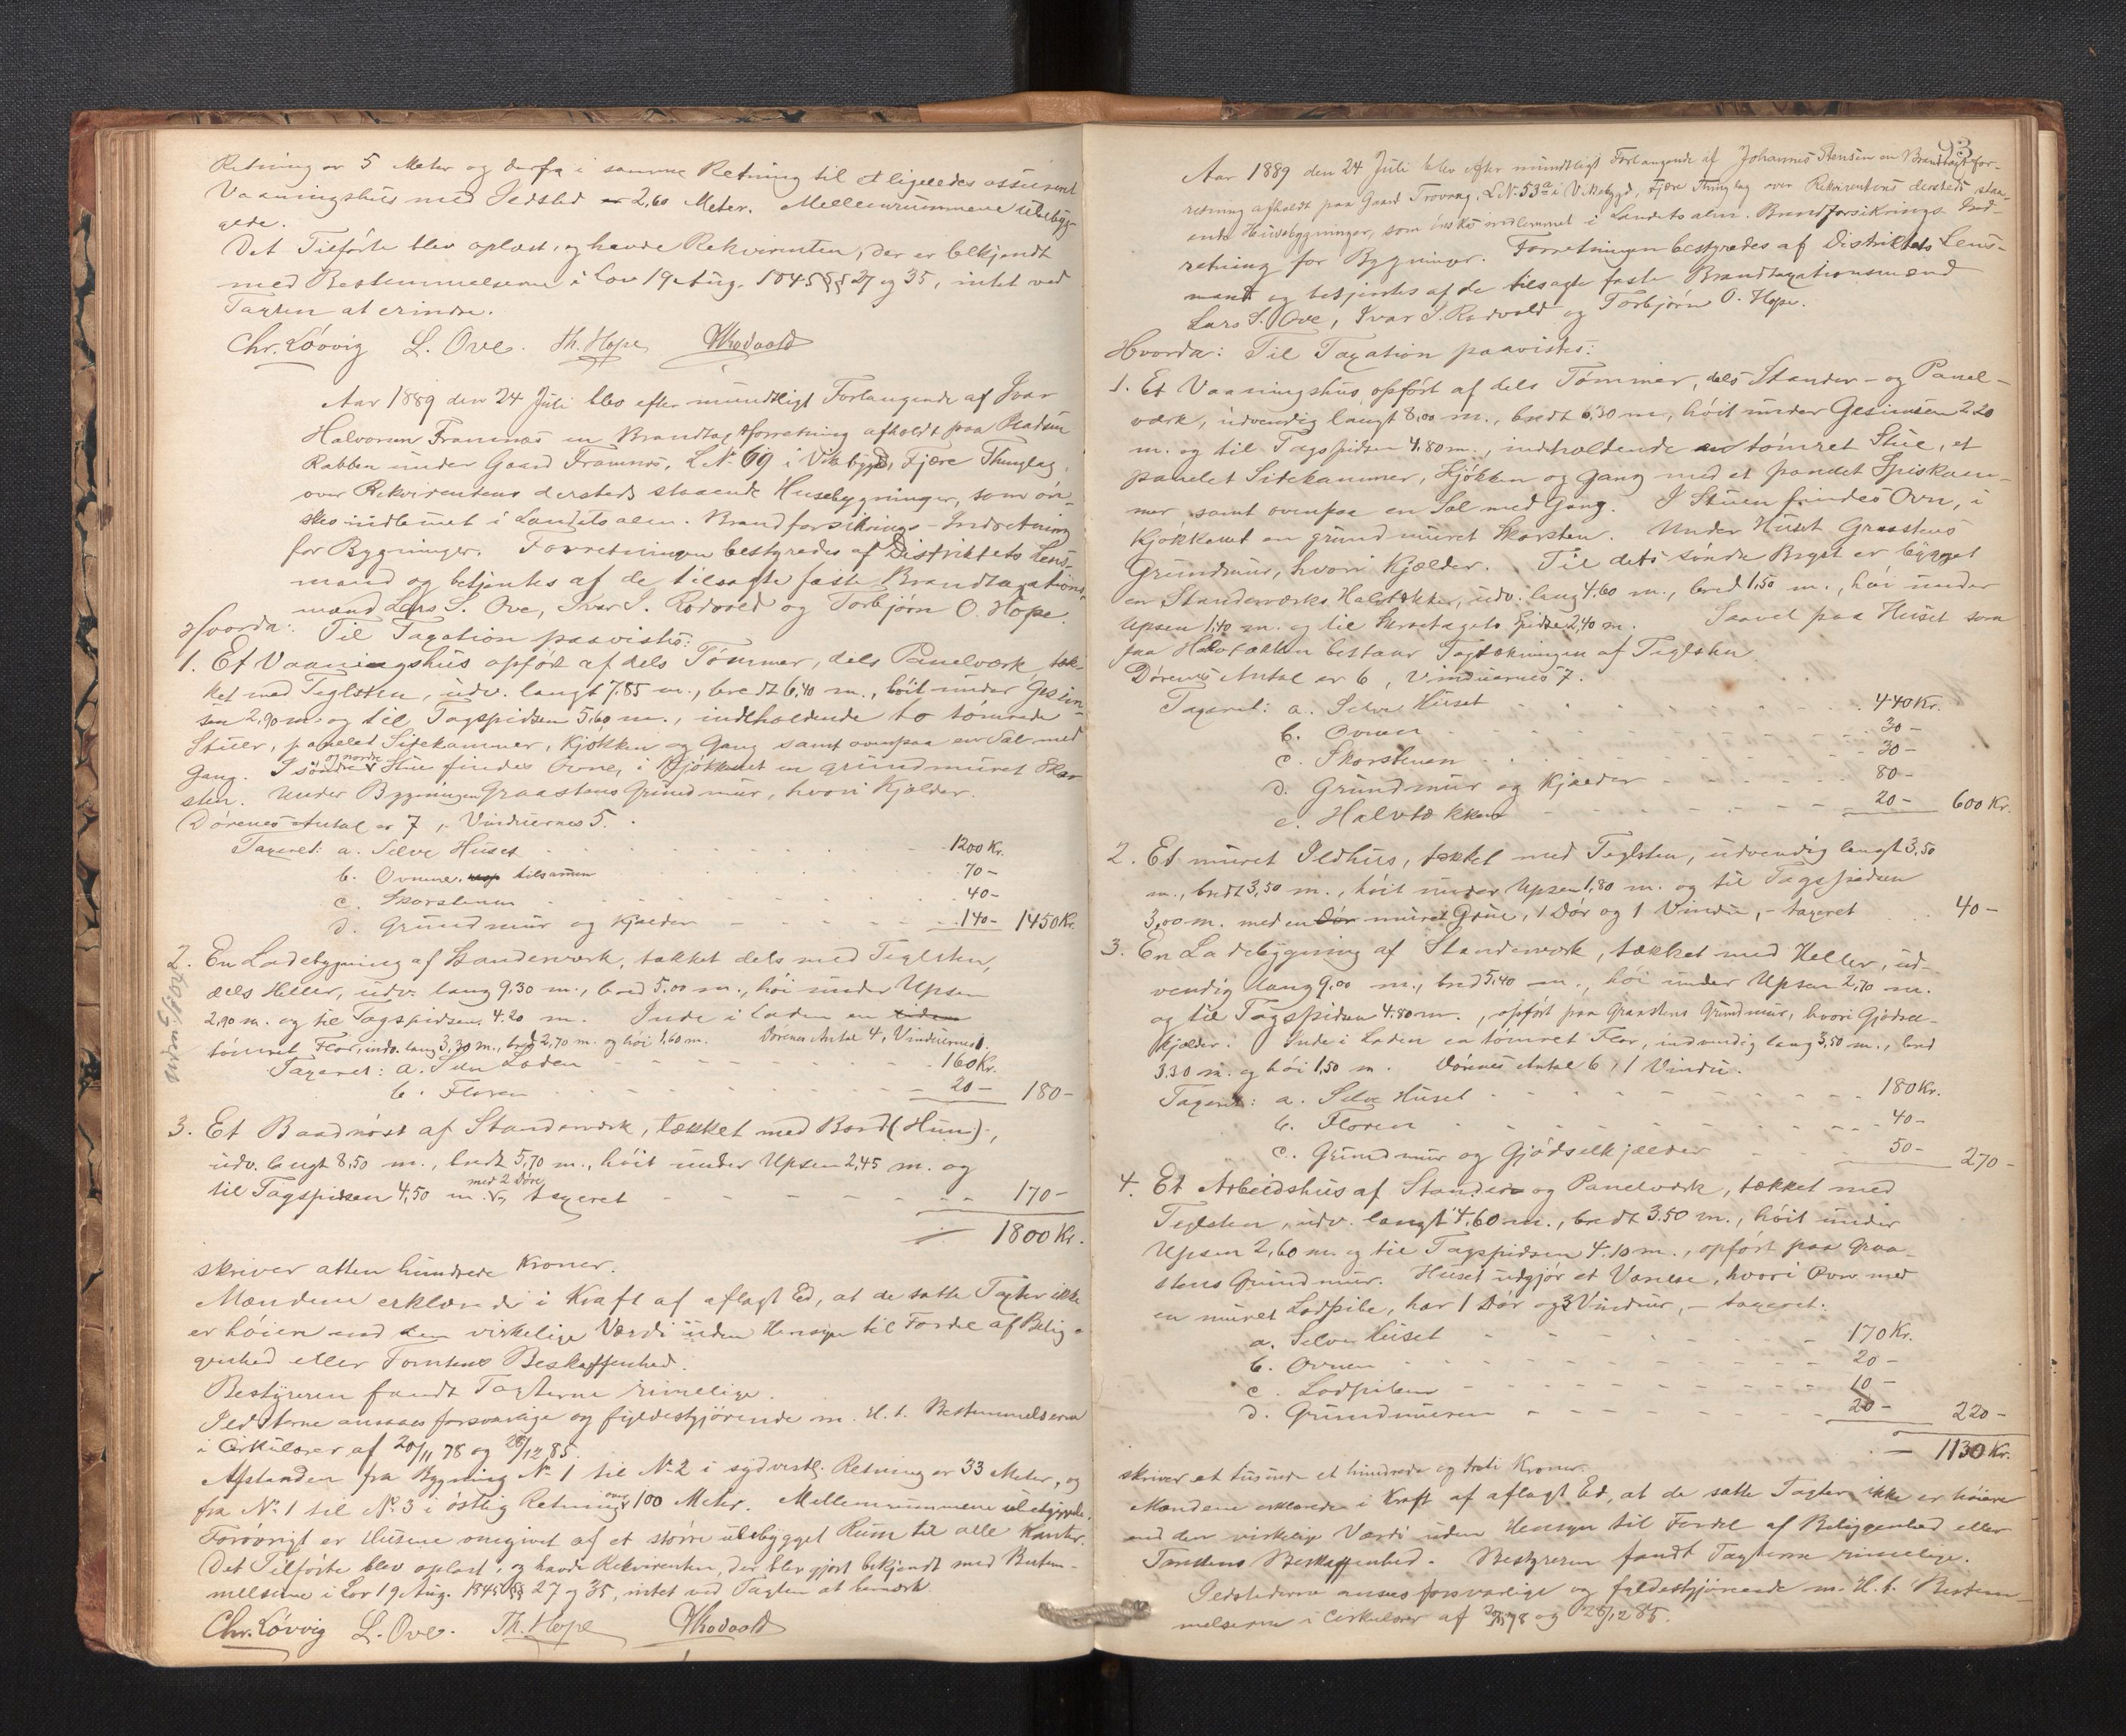 Retning er 5 Meter og derfra i samme Retning til et ligeledes assureret
Vaaningshus med Ildsted er 2,60 Meter. Mellemrummene ubebyg-
gede.
Det Tilførte blev oplæst, og havde Rekvirenten, der er bekjendt
med Bestemmelserne i Lov 19 Aug. 1845 §§ 27 og 35, intet ved
Taxten at erindre.
Chr. Løvvig L. Ove. Th. Hope
Aar 1889 den 24 Juli blev efter mundtligt Forlangende af Ivar
Halvorsen Framnæs en Brandtaxtforretning afholdt paa Pladsen
Rabben under Gaard Framnæs, L.N. 69 i Vikebygd, Fjære Thinglag,
over Rekvirentens dersteds staaende Husebygninger, som øn-
skes indlemmet i Landets alm. Brandforsikrings-Indretning
for Bygninger. Forretningen bestyredes af Distriktets Lens-
mand og betjentes af de tilsagte faste Brandtaxations-
mænd Lars S. Ove, Ivar I. Rodvold og Torbjørn O. Hope.
Hvorda: Til Taxation paavistes:
1. Et Vaaningshus opført af dels Tømmer, dels Panelværk, tæk-
ket med Teglsten, udv. langt 7,85 m., bredt 6,40 m., høit under Gesim-
sen 2,90 m. og til Tagspidsen 5,60 m., indeholdende to tømrede
Stuer, panelet Sidekammer, Kjøkken og Gang samt ovenpaa en Sal med
Gang. I søndre og nordre Stue findes Ovne, i Kjøkkenet en grundmuret Skor-
sten. Under Bygningen Graastens Grundmur, hvori Kjælder.
Dørenes Antal er 7, Vinduernes 5.
Taxeret: a. Selve Huset 1200 Kr.
b. Ovnene tilsammen 70 -
c. Skorstenen 40 -
d. Grundmur og Kjælder 140 - 1450 Kr.
2. En Ladebygning af Standerværk, tækket dels med Teglsten,
dels Heller, udv. lang 9,30 m., bred 5,00 m., høi under Upsen
2,90 m. og til Tagspidsen 4.20 m. Inde i Laden en
tømret Flor, indv. lang 3,30 m., bred 2,70 m. og høi 1,60 m. Dørenes Antal 4, Vinduernes
Taxeret: a. Selve Laden 160 Kr.
b. Floren 20 - 180 -
3. Et Baadnøst af Standerværk, tækket med Bord (Hun),
udv. langt 8,50 m., bredt 5,70 m., høit under Upsen 2,45 m. og
til Tagspidsen 4,50 m. med 2 Døre, taxeret 170 -
1800 Kr.
skriver atten hundrede Kroner.
Mændene erklærede i Kraft af aflagt Ed, at de satte Taxter ikke
er høiere end den virkelige Værdi uden Hensyn til Fordel af Belig-
genhed eller Tomtens Beskaffenhed.
Bestyreren fandt Taxterne rimelige.
Ildstederne ansaaes forsvarlige og fyldestgjørende m. H. t. Bestemmelserne
i Cirkulærer af 20/11 78 og 28/12 85.
Afstanden fra Bygning N. 1 til N. 2 i sydvestlig Retning er 33 Meter, og
fra N. 1 til N. 3 i østlig Retning over 100 Meter. Mellemrummene ubebyggede.
Forøvrigt er Husene omgivet af et større ubebygget Rum til alle Kanter.
Det Tilførte blev oplæst, og havde Rekvirenten, der blev gjort bekjendt med Bestem-
melserne i Lov 19 Aug. 1845 §§ 27 og 35, intet ved Taxten at bemærke.
Chr. Løvvig L. Ove. Th. Hope
93
Aar 1889 den 24 Juli blev efter mundtligt Forlangende af Johannes Stensen en Brandtaxtfor-
retning afholdt paa Gaard Trovaag, L.N. 53a i Vikebygd, Fjære Thinglag over Rekvirentens dersteds staa-
ende Husebygninger, som ønskes indlemmet i Landets alm. Brandforsikrings-Ind-
retning for Bygninger. Forretningen bestyredes af Distriktets Lens-
mand og betjentes af de tilsagte faste Brandtaxationsmænd
Lars S. Ove, Ivar I. Rodvold og Torbjørn O. Hope.
Hvorda: Til Taxation paavistes:
1. Et Vaaningshus, opført af dels Tømmer, dels Stander- og Panel-
værk, udvendig langt 8,00 m., bredt 6,30 m., høit under Gesimsen 2,20
m. og til Tagspidsen 4.80 m., indeholdende en tømret Stue, et
panelet Sidekammer, Kjøkken og Gang med et pandet Spiskam-
mer samt ovenpaa en Sal med Gang. I Stuen findes Ovn, i
Kjøkkenet en grundmuret Skorsten. Under Huset Graastens
Grundmur, hvori Kjælder. Til dets søndre Bryst er bygget
en Standerværks Halvtækker, udv. lang 4.60 m., bred 1,50 m., høi under
Upsen 1,40 m. og til Skraatagets Spidse 2,40 m. Saavel paa Huset som
paa Halvtækken bestaar Tagtækningen af Teglsten.
Dørenes Antal er 6, Vinduernes 7.
Taxeret: a. Selve Huset 440 Kr.
b. Ovnen 30 -
c. Skorstenen 30 -
d. Grundmur og Kjælder 80 -
e. Halvtækken 20 - 600 Kr.
2. Et muret Ildhus, tækket med Teglsten, udvendig langt 3,50
m., bredt 3,50 m., høit under Upsen 1,80 m. og til Tagspidsen
3,00 m. med en Dør muret Grue, 1 Dør og 1 Vindu, - taxeret 40 -
3. En Ladebygning af Standerværk, tækket med Heller, ud-
vendig lang 9,00 m., bred 5,40 m., høi under Upsen 2,70 m.
og til Tagspidsen 4.80 m., opført paa Graastens Grundmur, hvori Gjødsel-
kjælder. Inde i Laden en tømret Flor, indvendig lang 3,50 m., bred
3,30 m. og høi 1,50 m. Dørenes Antal 6, 1 Vindu.
Taxeret: a. Selve Huset 180 Kr.
b. Floren 40 -
c. Grundmur og Gjødselkjælder 50 - 270 -
4. Et Arbeidshus af Stander og Panelværk, tækket med
Teglsten, udv. langt 4,60 m., bredt 3.50 m., høit under
Upsen 2,60 m. og til Tagspidsen 4.10 m., opført paa Graa-
stens Grundmur. Huset udgjør et Værelse, hvori Ovn med
en muret Lodpibe, har 1 Dør og 3 Vinduer, - taxeret:
a. Selve Huset 170 Kr.
b. Ovnen 20 -
c. Lodpiben 10 -
d. Grundmuren 20 - 220 -
1130 Kr.
skriver et tusinde et hundrede og tredi Kroner.
Mændene erklærede i Kraft af aflagt Ed, at de satte Taxter ikke er høiere
end den virkelige Værdi uden Hensyn til Fordel af Beliggenhed eller
Tomtens Beskaffenhed. Bestyreren fandt Taxterne rimelige.
Ildstederne ansees forsvarlige og fyldestgjørende m. H. t. Bestem-
melserne i Cirkulærer af 20/11 78 og 28/12 85.